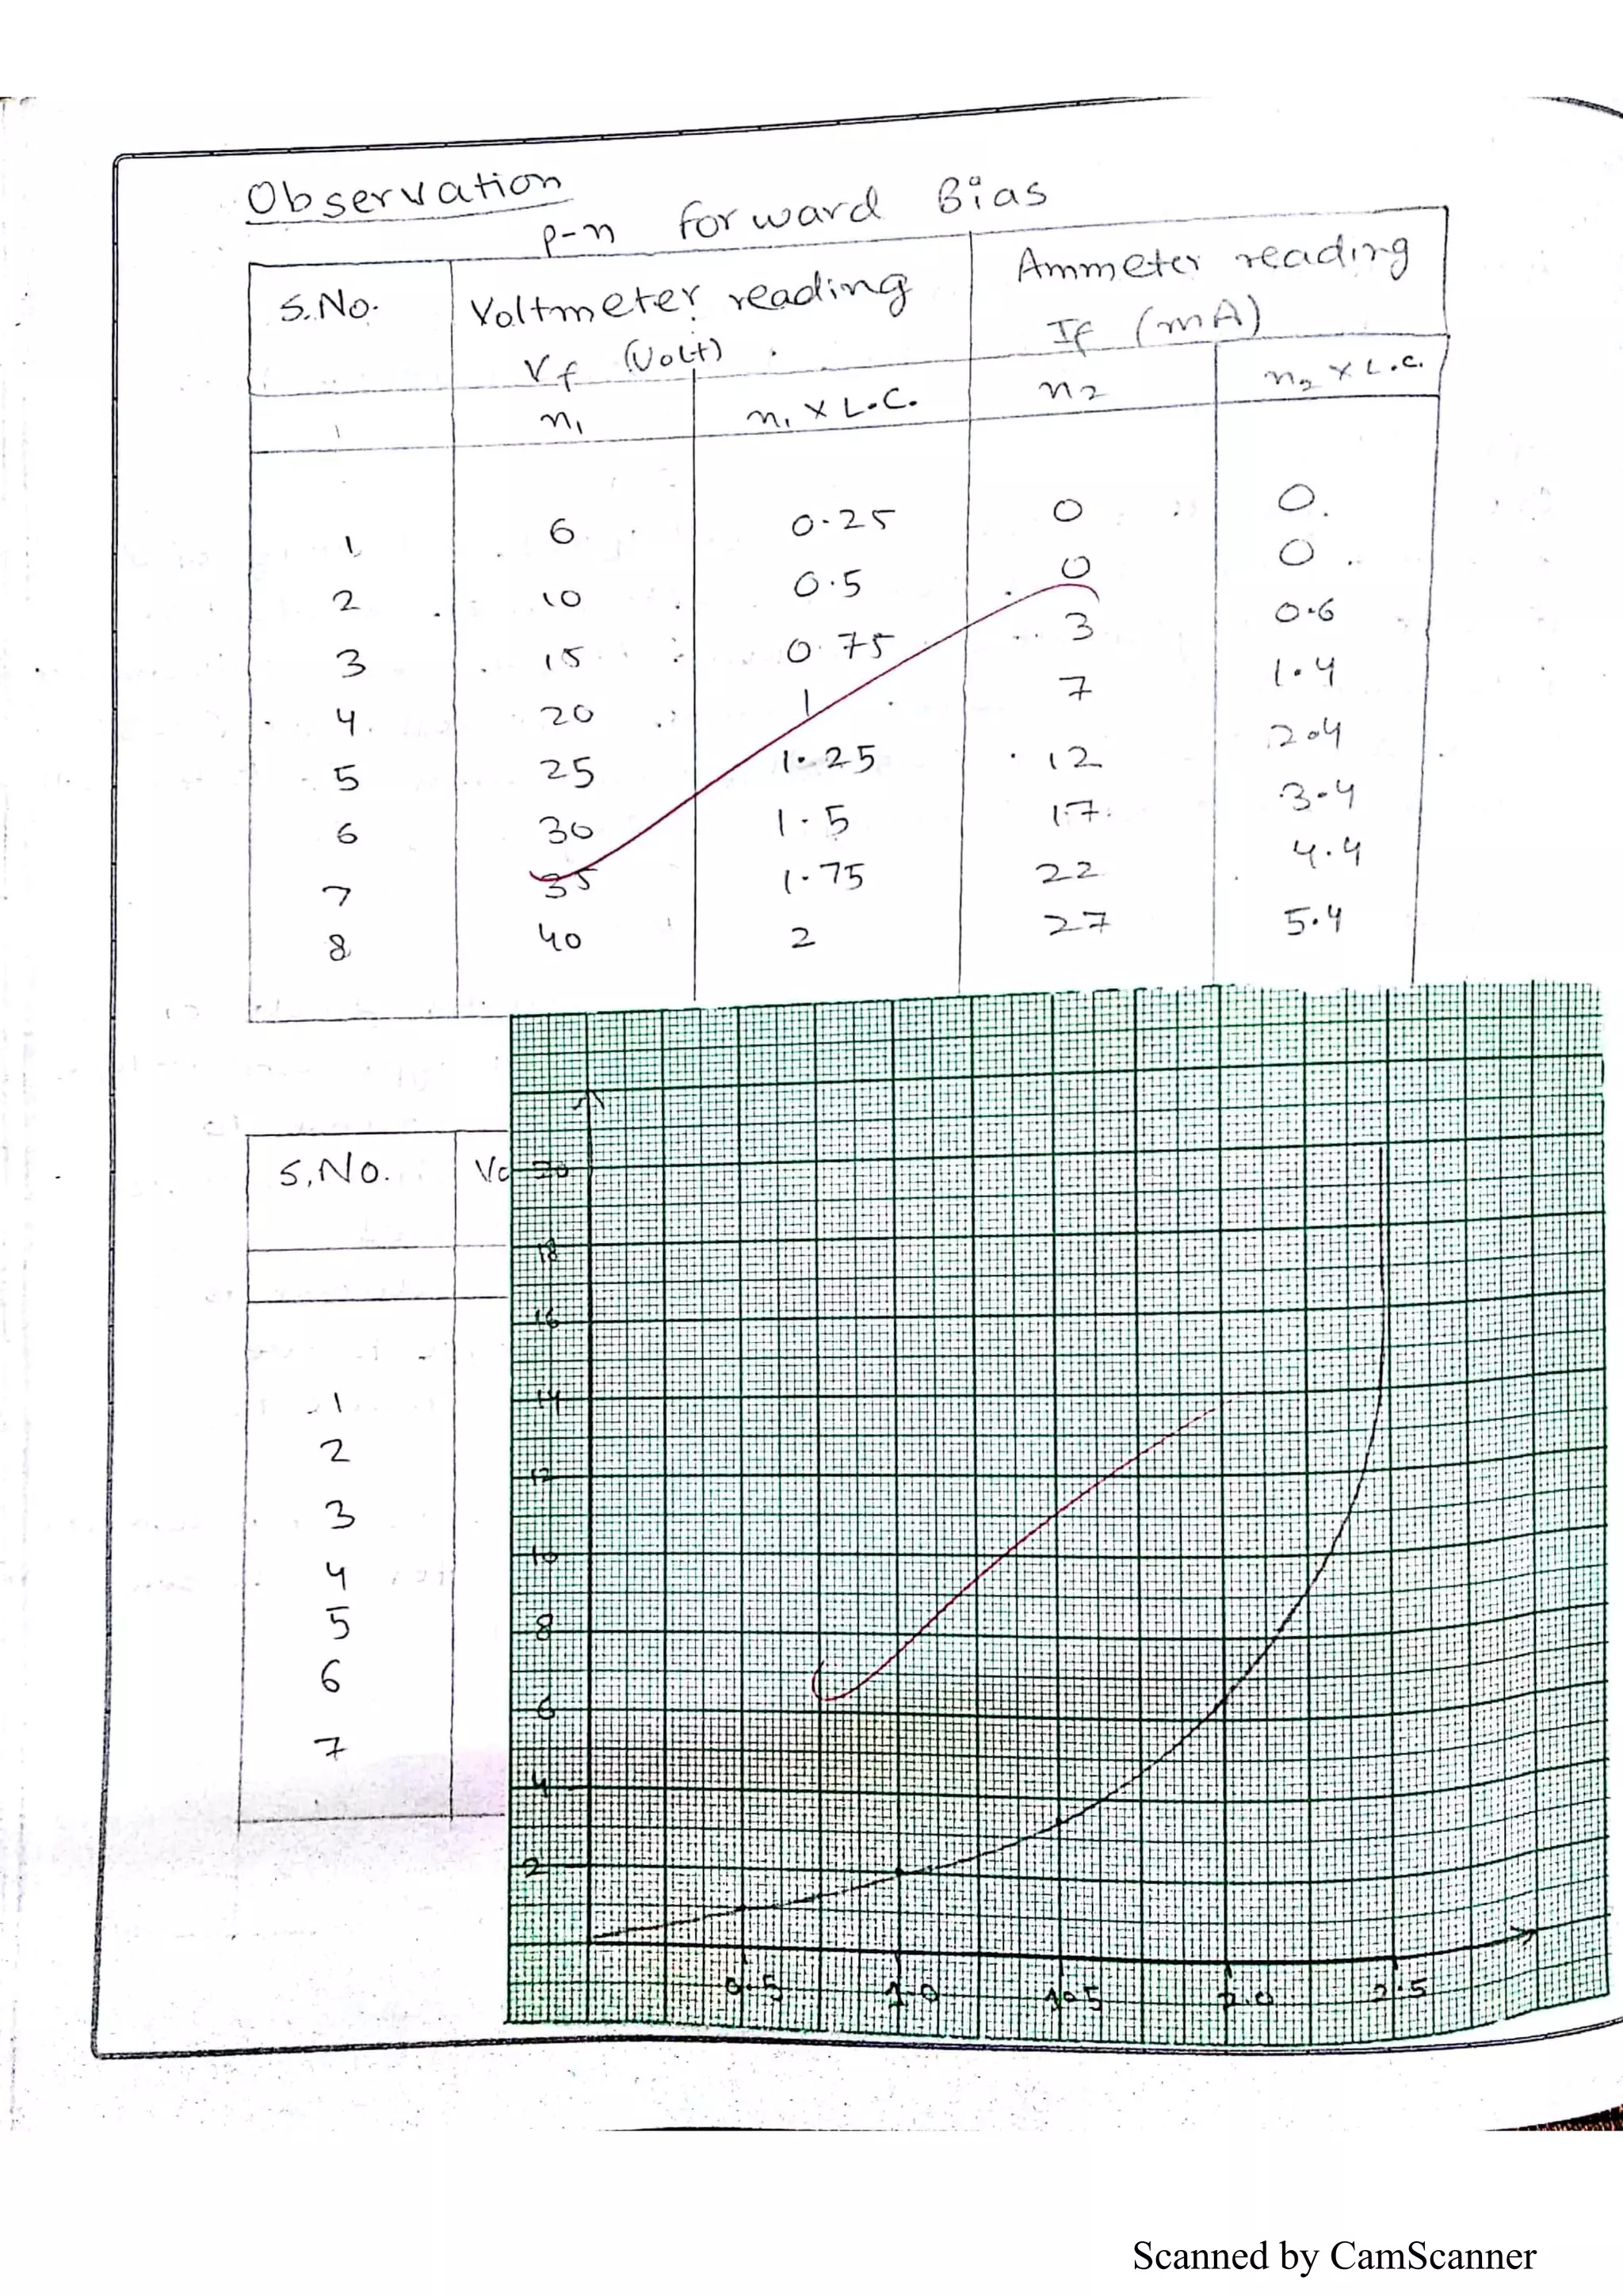 Observation
P-n forward Bias
S.No.
Voltmeter reading
Vf (Volt)
Ammeter reading
If (mA)
n1
n1 x L.C.
n2
n2 x L.C.
1 6 0.25 0 0
2 10 0.5 0 0
3 15 0.75 3 0.6
4 20 1 7 1.4
5 25 1.25 12 2.4
6 30 1.5 17 3.4
7 35 1.75 22 4.4
8 40 2 27 5.4
S.No.
1
2
3
4
5
6
7
20
18
16
14
12
10
8
6
4
2
0.5 1.0 1.5 2.0 2.5
Scanned by CamScanner